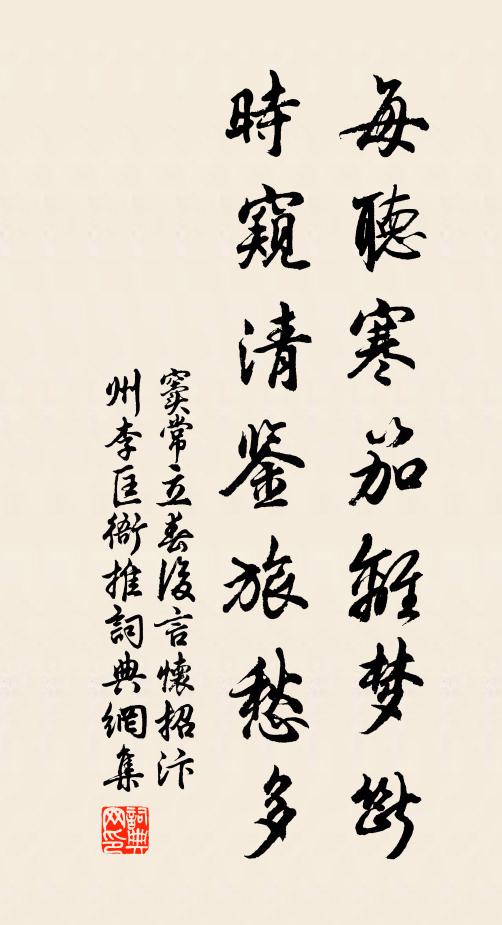 每聽寒笳離梦斷
時窺清鉴旅愁多
窦常立春後言懷招汴
州李匡衙推詞典網集
詞典网印